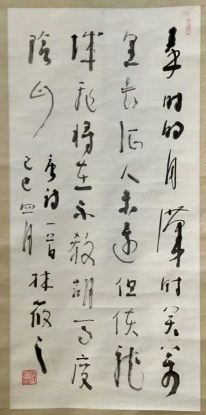 秦時明月漢時關萬
里長征人未還但使龍
城飛將在不教胡馬度
陰山
唐詩一首
己巳四月
林筱之